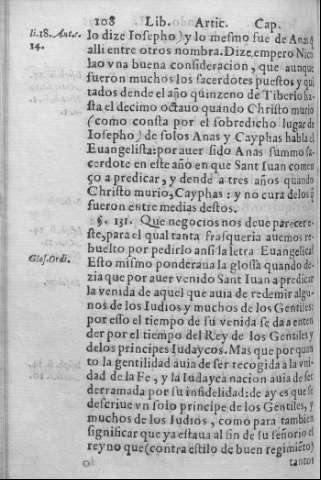 108 Lib. Artic. Cap.
li.18. Ant.c.
14.
lo dize Iosepho) y lo mesmo fue de Anas q̃
alli entre otros nombra. Dize empero Nico
lao vna buena consideracion, que aunque
fueron muchos los sacerdotes puestos y qui
tados dende el año quinzeno de Tiberio ha-
sta el decimo octauo quando Christo murio
(como consta por el sobredicho lugar de
Iosepho) de solos Anas y Cayphas habla el
Euangelista: por auer sido Anas summo sa-
cerdote en este año en que Sant Iuan comen
ço a predicar, y dende a tres años quando
Christo murio, Cayphas: y no cura de los q̃
fueron entre medias destos.
§. 131. Que negocios nos deue parecer e-
ste, para el qual tanta frasqueria auemos re-
buelto por pedirlo anssi la letra Euangelica?
Glos. Ordi.
Esto mismo ponderaua la glossa quando de-
zia que por auer venido Sant Iuan a predicar
la venida de aquel que auia de redemir algu-
nos de los Iudios y muchos de los Gentiles:
por esso el tiempo de su venida se da a enten
der por el tiempo del Rey de los Gentiles y
de los principes Iudaycos. Mas que por quan
to la gentilidad auia de ser recogida a la vni-
dad de la Fe, y la Iudayca nacion auia de ser
derramada por su infidelidad: de ay es que se
descriue vn solo principe de los Gentiles, y
muchos de los Iudios, como para tambien
significar que ya estaua al fin de su señorio el
reyno que (contra estilo de buen regimiẽto)
tantos